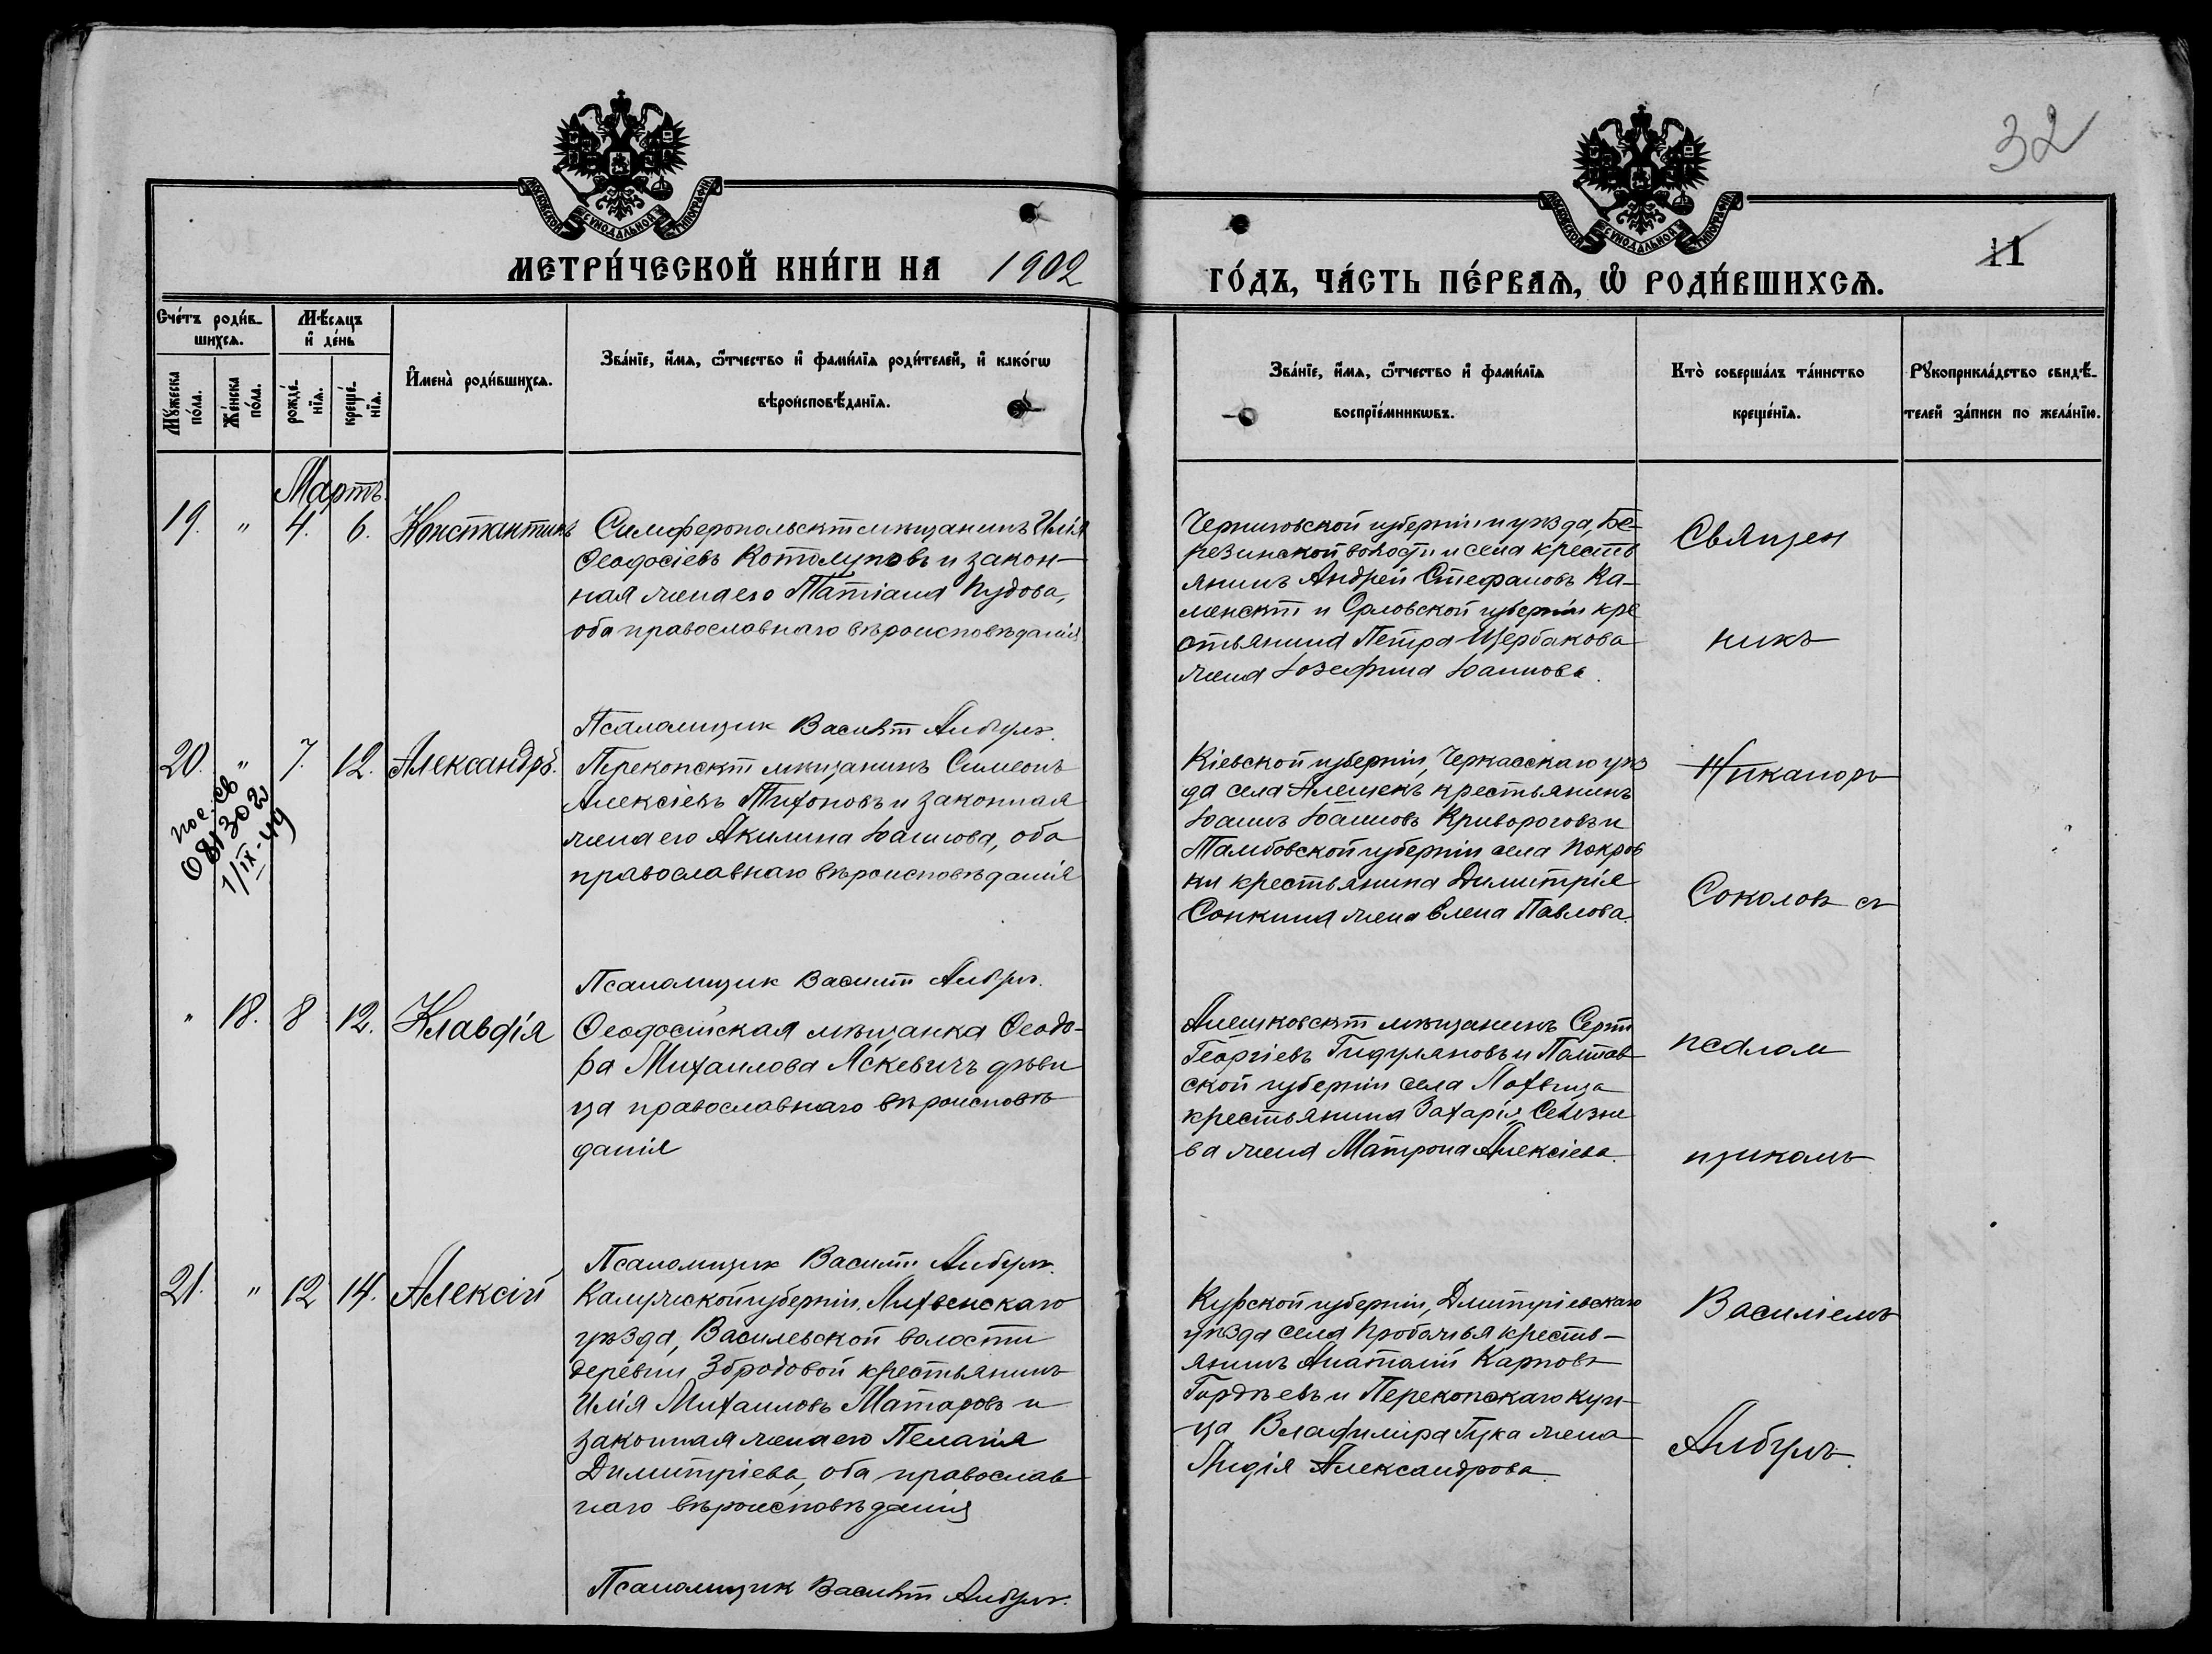 32
МОСКОВСКОЙ СѴНОДАЛЬНОЙ ТИПОГРАФІИ
МОСКОВСКОЙ СѴНОДАЛЬНОЙ ТИПОГРАФІИ
МЕТРИ́ЧЕСКОЙ КНИ́ГИ НА 1902
ГО́ДЪ, ЧА́СТЬ ПЕ́РВАѦ, Ѿ РОДИ́ВШИХСѦ.
11
Сче́тъ роди́в-
шихсѧ.
Мѣ́сѧцъ
и҆ де́нь
Мꙋ́жеска
по́ла.
Же́нска
по́ла.
рожде́-
нїѧ.
креще́-
нїѧ.
И҆мена̀ роди́вшихсѧ.
Зва́нїе, и҆́мѧ, ѻ҆́тчество и҆ фами́лїѧ роди́телей, и҆ како́гѡ
вѣроисповѣ́данїѧ.
Зва́нїе, и҆́мѧ, ѻ҆́тчество и҆ фами́лїѧ
воспрїе́мникѡвъ.
Кто̀ соверша́лъ та́инство
креще́нїѧ.
Рꙋкоприкла́дство свидѣ́-
телей за́писи по жела́нїю.
Мартъ.
19. " 4. 6. Константинъ
Симферопольскій мѣщанинъ Илія
Ѳеодосіевъ Котолуповъ и закон-
ная жена его Татіана Пудова,
оба православнаго вѣроисповѣданія
Черниговской губерніи и уѣзда, Бе-
резинской волости и села кресть
янинъ Андрей Стефановъ Ка-
менскій и Орловской губерніи кре
стьянина Петра Щербакова
жена Іозефина Іоаннова.
Священ
никъ
Псаломщик Василій Албулъ.
20. " 7. 12. Александръ.
пос. св
081302
1/IX-49
Перекопскій мѣщанинъ Симеонъ
Алексіевъ Тихоновъ и законная
жена его Акилина Іоаннова, оба
православнаго вѣроисповѣданія
Кіевской губерніи, Черкасскаго уѣз
да села Алешекъ крестьянинъ
Іоаннъ Іоанновъ Кривороговъ и
Тамбовской губерніи села Покров
ки крестьянина Димитрія
Сонкина жена Елена Павлова.
Никаноръ
Соколовъ съ
Псаломщик Василій Албулъ.
" 18. 8 12. Клавдія
Ѳеодосійская мѣщанка Ѳеодо-
ра Михаилова Яскевичъ дѣви
ца православнаго вѣроисповѣ
данія
Алешковскій мѣщанинъ Сергій
Георгіевъ Гидуляновъ и Полтав
ской губерніи села Лохвица
крестьянина Захарія Селезне
ва жена Матрона Алексіева.
псалом
щикомъ
Псаломщик Василій Албулъ.
21. " 12 14. Алексій
Калужской губерніи, Лихвенскаго
уѣзда, Василевской волости
деревни Збродовой крестьянинъ
Илія Михаиловъ Матаровъ и
законная жена его Пелагія
Димитріева, оба православ
наго вѣроисповѣданія
Курской губерніи, Дмитріевскаго
уѣзда села Пробожья кресть-
янинъ Анатолій Карповъ
Гордѣевъ и Перекопскаго куп-
ца Владиміра Гука жена
Лидія Александрова.
Василіемъ
Албулъ.
Псаломщик Василій Албулъ.